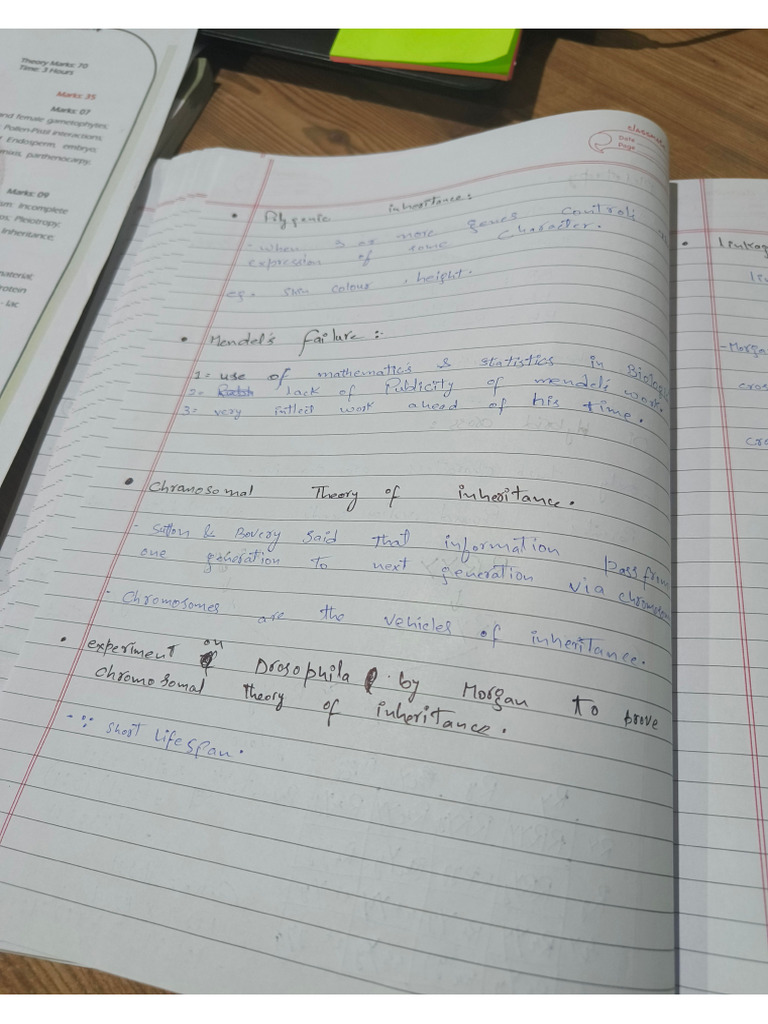 Theory Marks: 70
Time: 3 Hours
Marks: 35
Marks: 07
and female gametophytes;
Pollen-Post interactions,
Endosperm, embryo;
parthenocarpy.
Marks: 09
Incomplete
Pleiotropy;
Inheritance,
material
rotein
- lac
classmate
Date
Page
• Polygenic inheritance:
- When 3 or more genes controls
expression of some character.
eg. skin colour, height.
• Mendel's failure :-
1= use of mathematics & statistics in Biology
2= lack of Publicity of mendel's work.
3= very work ahead of his time.
• Chromosomal Theory of inheritance.
- Sutton & Bovery said that information pass from
one generation to next generation via chromosom
- Chromosomes are the vehicles of inheritance.
• experiment on Drosophila by Morgan to prove
chromosomal theory of inheritance.
- ∵ short lifespan.
• linkag
lin
- Morga
cros
cro